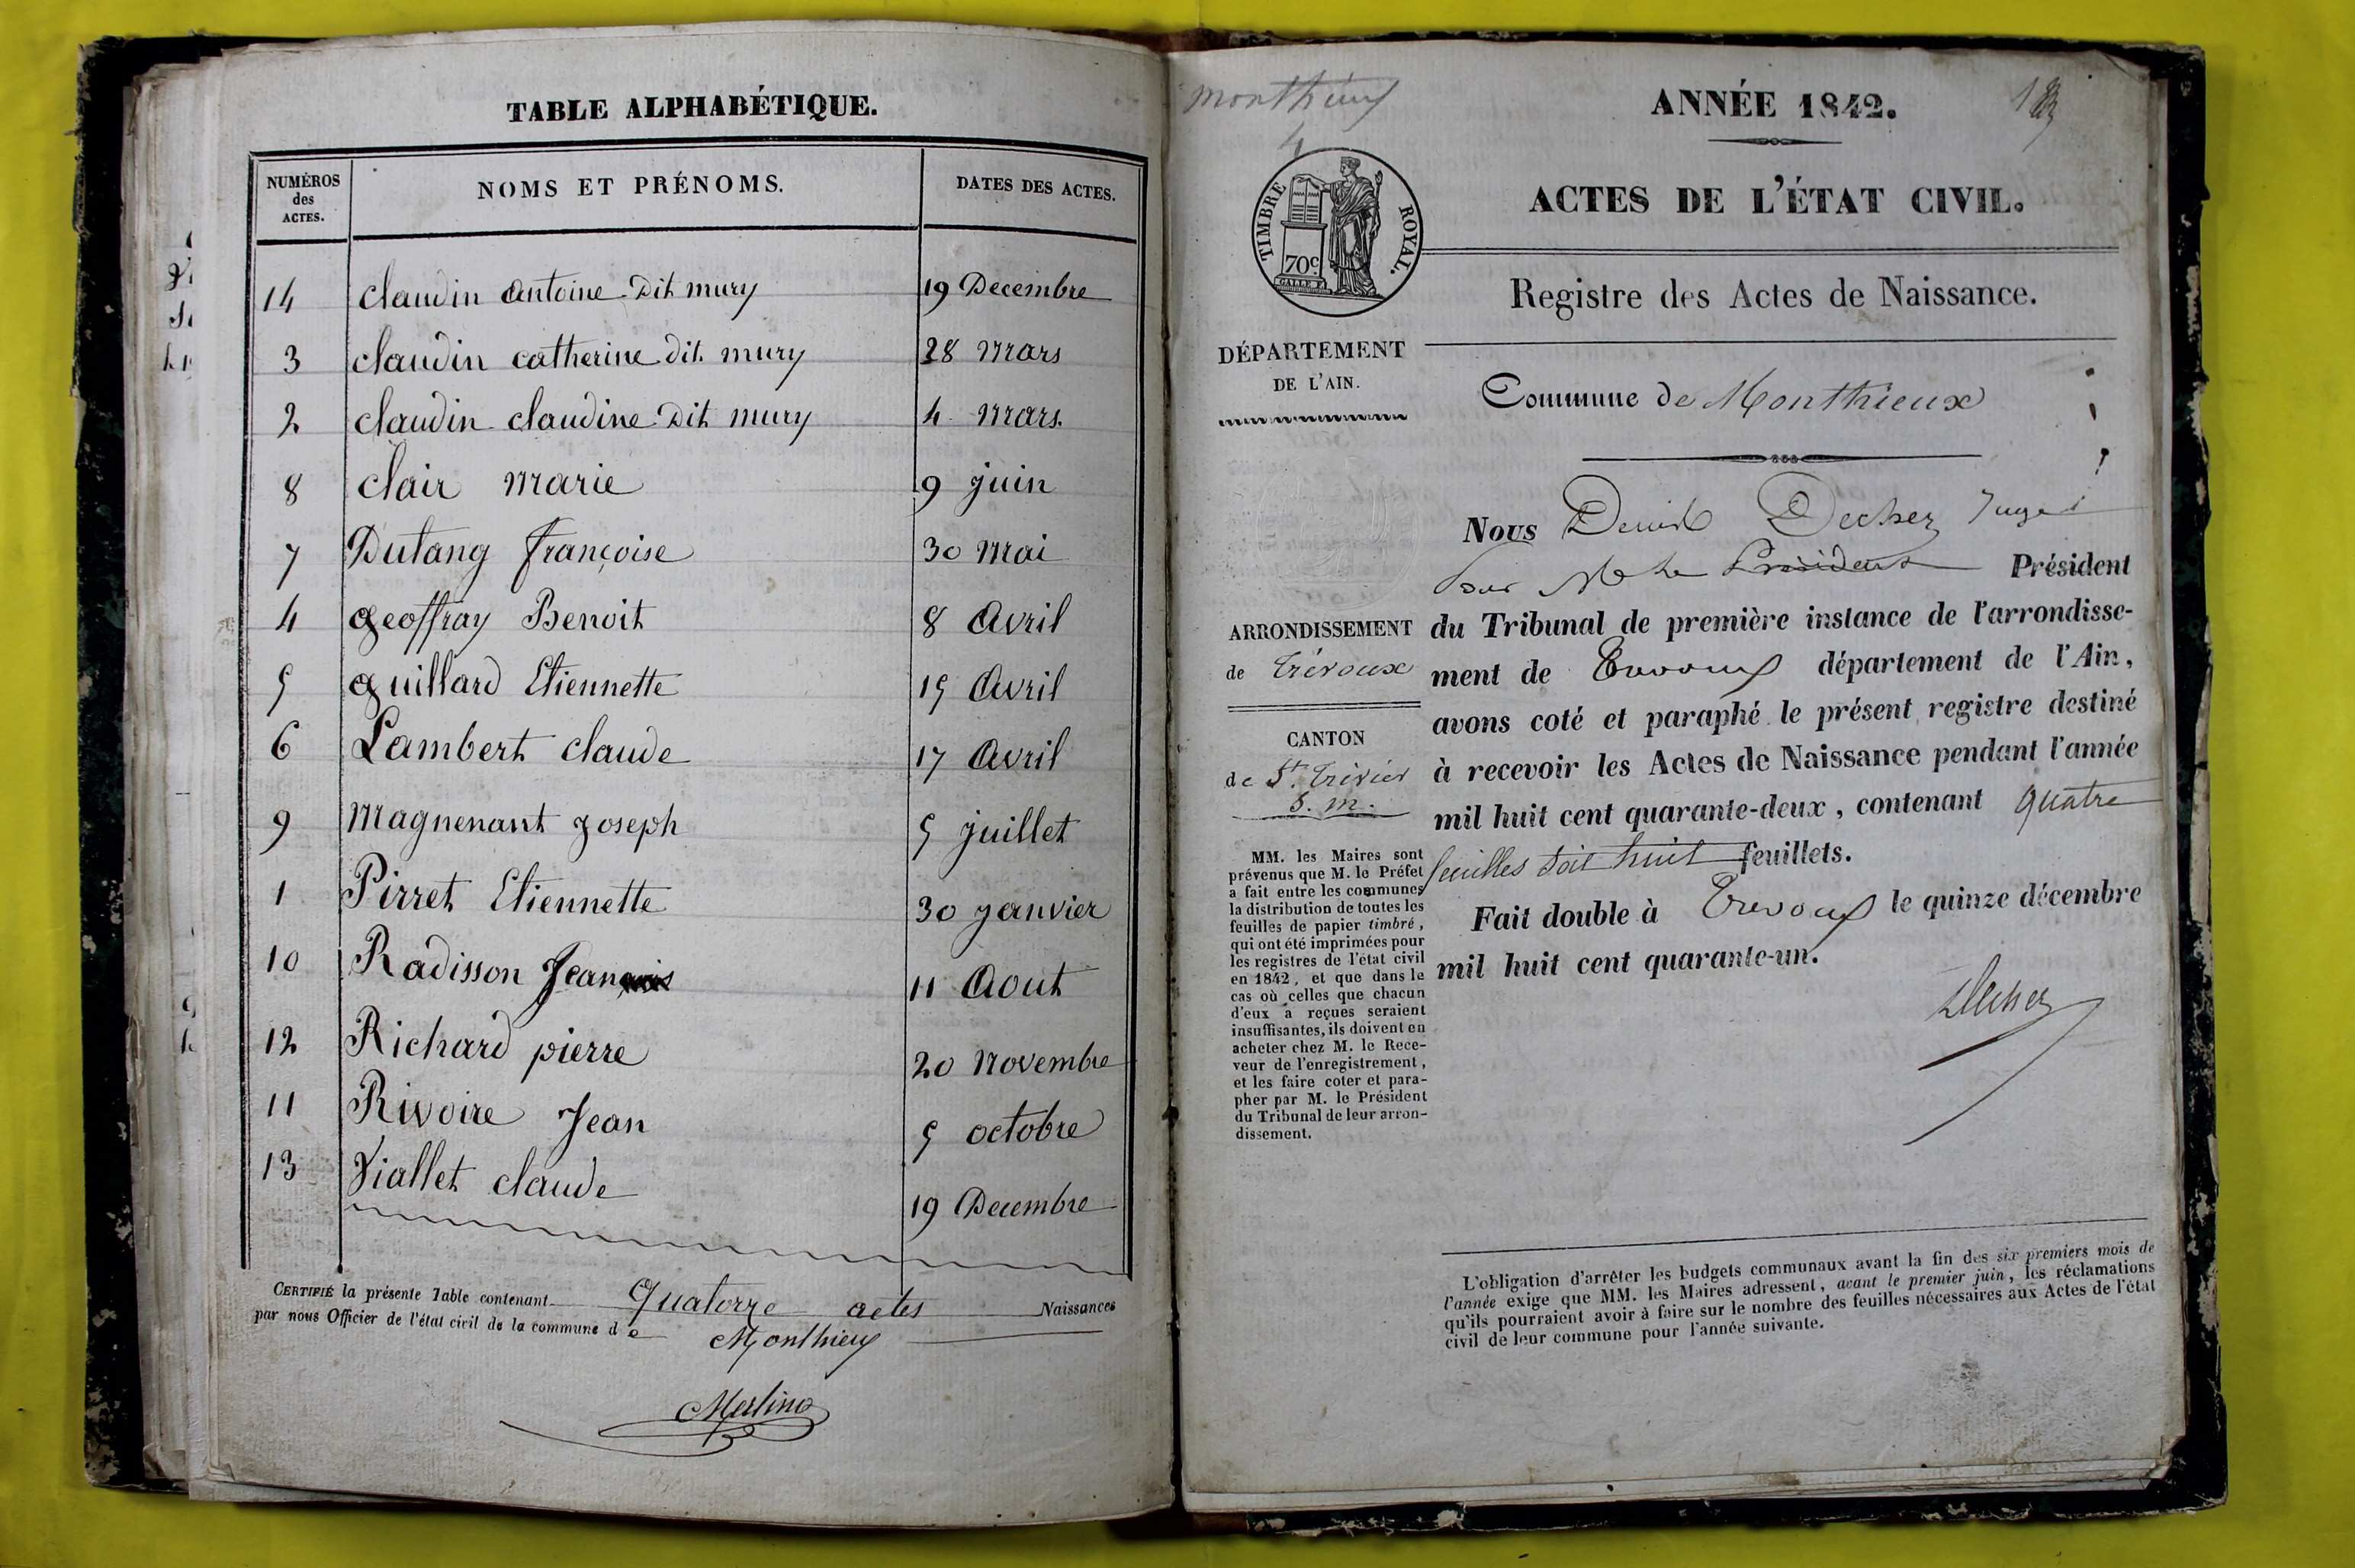 TABLE ALPHABÉTIQUE.
NUMÉROS des ACTES. NOMS ET PRÉNOMS. DATES DES ACTES.
14 claudin antoine dit mury 19 Decembre
3 claudin catherine dit mury 28 mars
2 claudin claudine Dit mury 4 mars.
8 clair marie 9 juin
7 Dutang françoise 30 mai
4 geoffray Benoit 8 avril
5 guillard Etiennette 15 avril
6 Lambert claude 17 avril
9 magnenant joseph 5 juillet
1 Pirret Etiennette 30 janvier
10 Radisson Jean 11 Aout
12 Richard pierre 20 novembre
11 Rivoire Jean 5 octobre
13 Viallet claude 19 Decembre
CERTIFIÉ la présente Table contenant Quatorze actes Naissances
par nous Officier de l'état civil de la commune de Monthieux
Merlino
monthieux
4
ANNÉE 1842.
TIMBRE ROYAL.
70c
GALLE F.
ACTES DE L'ÉTAT CIVIL.
Registre des Actes de Naissance.
DÉPARTEMENT
DE L'AIN.
Commune de Monthieux
Nous Juge
pour Mr Le President Président
du Tribunal de première instance de l'arrondisse-
ment de Trevoux département de l'Ain,
avons coté et paraphé le présent registre destiné
à recevoir les Actes de Naissance pendant l'année
mil huit cent quarante-deux, contenant quatre
feuilles soit huit feuillets.
Fait double à Trevoux le quinze décembre
mil huit cent quarante-un.
ARRONDISSEMENT
de Trévoux
CANTON
de St. Trivier
S. m.
MM. les Maires sont
prévenus que M. le Préfet
a fait entre les communes
la distribution de toutes les
feuilles de papier timbré,
qui ont été imprimées pour
les registres de l'état civil
en 1842, et que dans le
cas où celles que chacun
d'eux a reçues seraient
insuffisantes, ils doivent en
acheter chez M. le Rece-
veur de l'enregistrement,
et les faire coter et para-
pher par M. le Président
du Tribunal de leur arron-
dissement.
L'obligation d'arrêter les budgets communaux avant la fin des six premiers mois de
l'année exige que MM. les Maires adressent, avant le premier juin, les réclamations
qu'ils pourraient avoir à faire sur le nombre des feuilles nécessaires aux Actes de l'état
civil de leur commune pour l'année suivante.